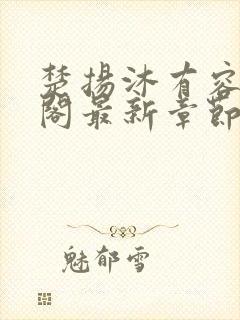 楚揚沐有容
閣最新章節
魅郁雪